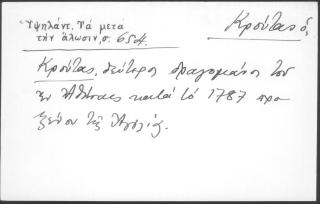 Ὑψηλάντ. Τὰ μετὰ
τὴν ἅλωσιν, σ. 654.
Κρούτας ὁ,
Κρούτας, δεύτερος δραγομάνος τοῦ
ἐν Ἀθήναις κατὰ τὸ 1787 προ
ξένου τῆς Ἀγγλίας.